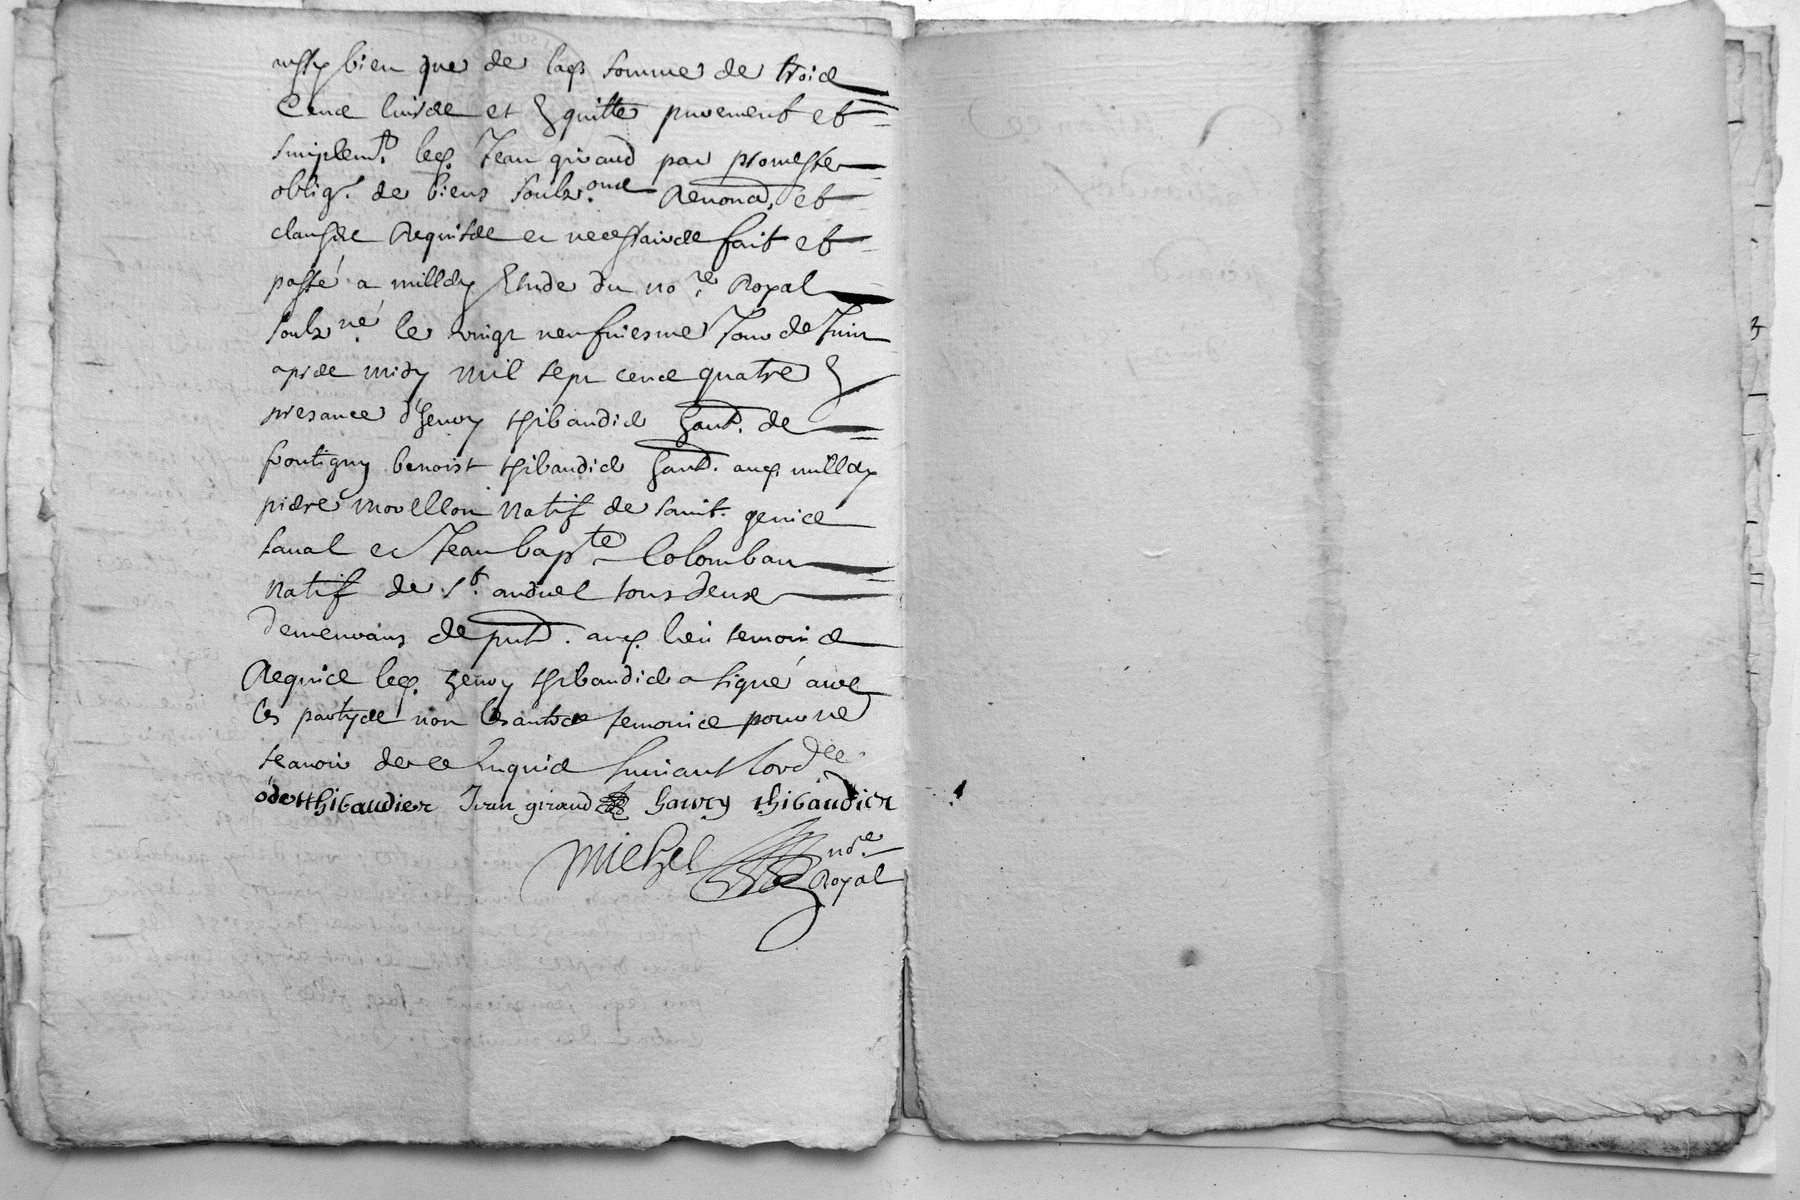 aussy bien que de lad. somme de trois
Cens livres et Quitte purement et
simplemt. led. Jean giraud par promesses
oblig. de biens soubz.ons Renond. et
clauses Requises et necessaires fait et
passé a millery Etude du no.re Royal
soubz.né le vingt neufviesme Jour de Juin
apres midy mil sept cens quatre En
presance d'henry thibaudier habt. de
frontigny benoist thibaudier habt. aud. millery
pierre morellon natif de saint. genis
laval et Jean bapte. Colomban
natif de St. andeol tous deux
demeurans de pnt. aud. lieu temoins
Requis led. henry thibaudier a signé avec
les partyes non les autres temoins pour ne
scavoir de ce Enquis suivant lord.ce
ode thibaudier Jean giraud hanry thibaudier
Michel no.re
Royal